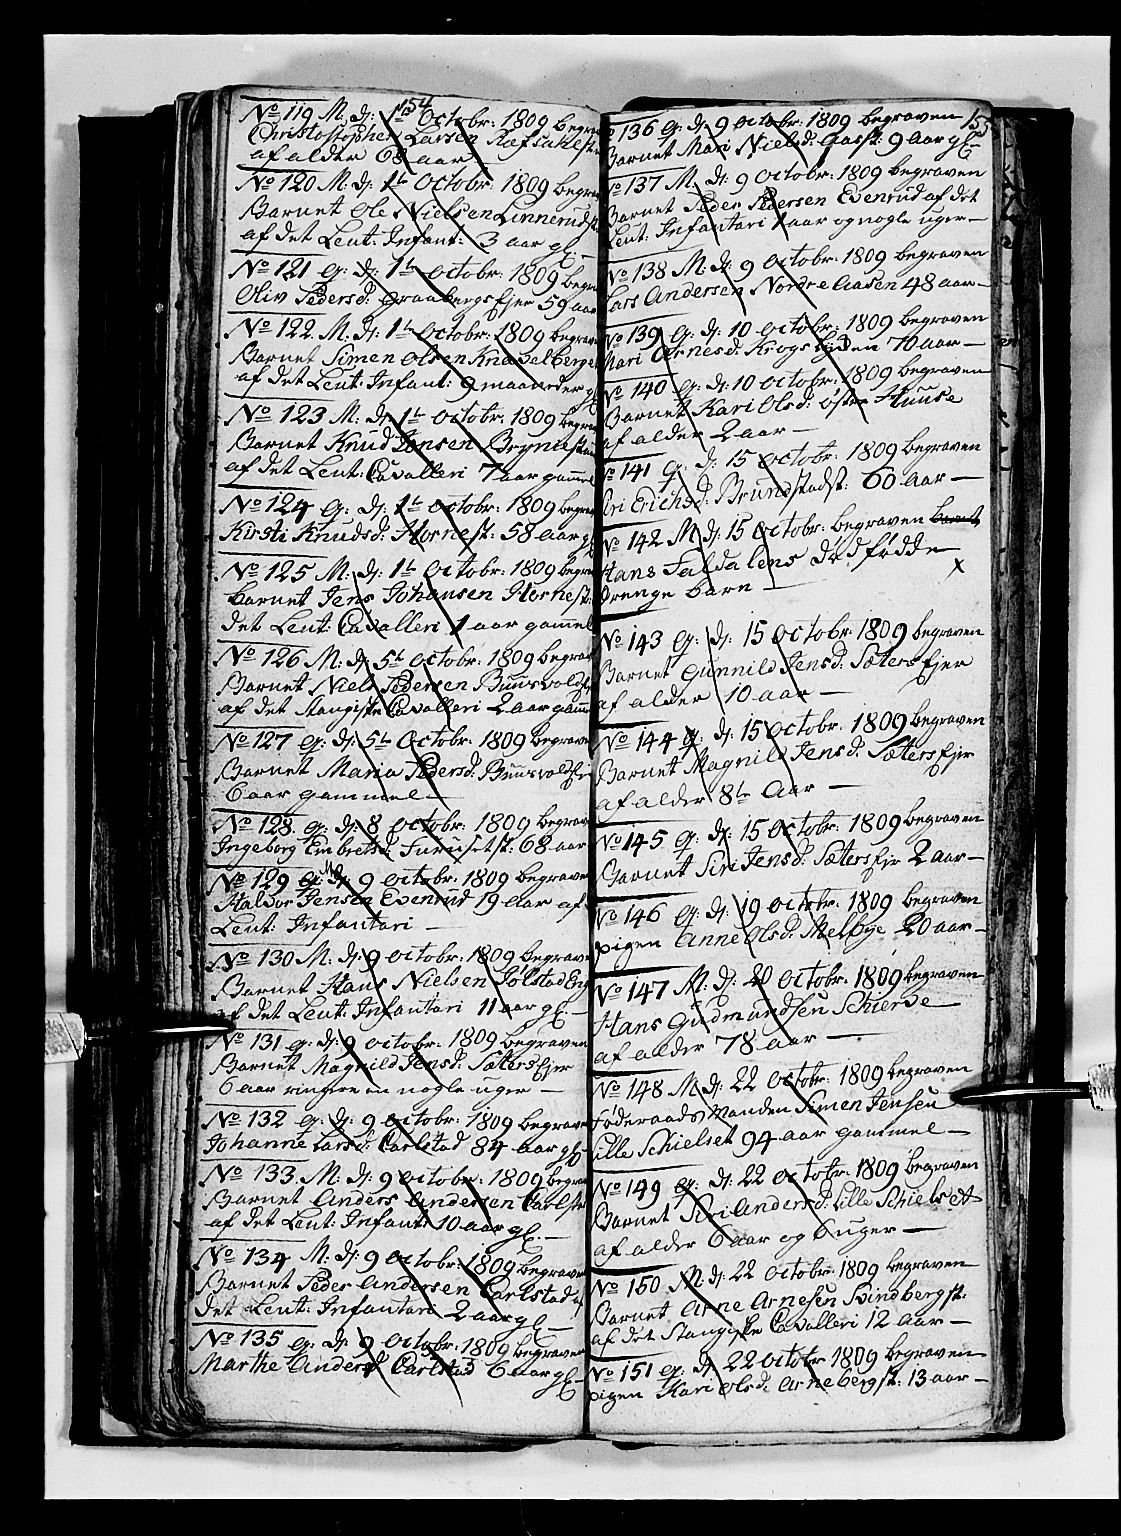 154
No 119 M. d: 1te Octobr: 1809 begra
Christostopher Larsen Refsahlst
af alder 68 aar
No 120 M: d: 1te Octobr: 1809 begra
Barnet Ole Nielsen Linnerudst
af det Leut: Infant: 3 aar gl. —
No 121 Q: d: 1te Octobr: 1809 begra
Oliv Pedersd: Graabergsejer 59 aar
No 122. M. d: 1te Octobr: 1809 begrav
Barnet Simen Olsen Knavelberge
af det Leut: Infant: 9 maaneder g
No 123 M: d: 1te Octobr: 1809 begra
Barnet Knud Jonsen Bryniesta
af det Leut: Cavalleri 7 aar gammel
No 124 Q: d: 1te Octobr: 1809 begra
Kirsti Knudsd: Hornest: 58 aar g
No 125 M: d: 1te Octobr: 1809 begra
barnet Jens Johansen Hornest:
det Leut: Cavalleri 1 aar gammel
No 126 M: d: 5te Octobr: 1809 begrav
Barnet Niels Pedersen Buusvolds
af det Stangiske Cavalleri 2 aar gamm
No 127 Q: d: 5te Octobr: 1809 begrave
Barnet Maria Pedersd: Buusvoldsej
6 aar gammel —
No 128. Q: d: 8 Octobr: 1809 begrave
Ingeborg Embretsd: Furusetst: 68 aar
No 129 M d: 9 Octobr: 1809 begrave
Haldor Jensen Evenrud 19 Aar af
Leut: Infantari —
No 130 M: d: 9 Octobr: 1809 begrave
Barnet Hans Nielsen Sølstad Eng
af det Leut: Infantari 11 aar gl. —
No 131 Q: d: 9 Octobr: 1809 begraven
Barnet Magnild Jensd: Sætersejer
6 aar ringere en nogle uger —
No 132 Q: d: 9 Octobr: 1809 begrave
Johanne Larsd: Carlstad 84 aar gl. —
No 133. M: d: 9 Octobr: 1809 begra
Barnet Anders Andersen Carlst
af det Leut: Infant: 10 aar gl. —
No 134 M: d: 9 Octobr: 1809 begrave
Barnet Peder Andersen Carlstad a
det Leut: Infantari 2 aar gl —
No 135 Q: d: 9 Octobr: 1809 begraven
Marthe Andersd Carlstad 6 aar gl —
155
No 136 Q: d: 9 Octobr: 1809 begraven
Barnet Mari Nielsd: 9 aar gl —
No 137 M. d: 9 Octobr: 1809 begraven
Barnet Peder Pedersen Evenrud af det
Leut: Infantari 1 aar og nogle uger —
No 138 M: d: 9 Octobr: 1809 begraven
Lars Andersen Nordre Aasen 48 aar —
No 139 Q: d: 10 Octobr: 1809 begraven
Mari Arnesd: Krogsbyden 70 aar —
No 140 Q: d: 10 Octobr: 1809 begraven
Barnet Kari Olsd: Østre Huuse
af alder 2 aar —
No 141 Q: d: 15 Octobr: 1809 begraven
Siri Erichsd: Brundstadst: 60 aar —
No 142 M: d: 15 Octobr: begraven barnet
Hans Saldalens dødfødde
drenge barn — x
No 143 Q: d: 15 Octobr: 1809 begraven
Barnet Gunnild Jensd: Sætersejer
af alder 10 aar —
No 144 Q: d: 15 Octobr: 1809 begraven
Barnet Magnild Jensd: Sætersejer
af alder 8te Aar —
No 145 Q: d: 15 Octobr: 1809 begraven
Barnet Siri Jensd: Sætersejr 2 aar —
No 146 Q: d: 19 Octobr: 1809 begraven
pigen Anne Olsd: Melbye 20 aar —
No 147 M: d: 20 Octobr: 1809 begraven
Hans Gudmundsen Schierde
af alder 78 aar —
No 148 M: d: 22 Octobr: 1809 begraven
Føderaads Manden Simen Jensen
Lille Schielset 94 aar gammel —
No 149 Q: d: 22 Octobr: 1809 begraven
Barnet Siri Andersd: Lille Schielset
af alder 6 aar og 6 uger —
No 150 M: d: 22 Octobr: 1809 begraven
Barnet Arne Arnesen Svindbergst:
af det Stangiske Cavalleri 12 aar —
No 151 Q: d: 22 Octobr 1809 begraven
pigen Kari Olsd: Arnebergst: 13 aar —